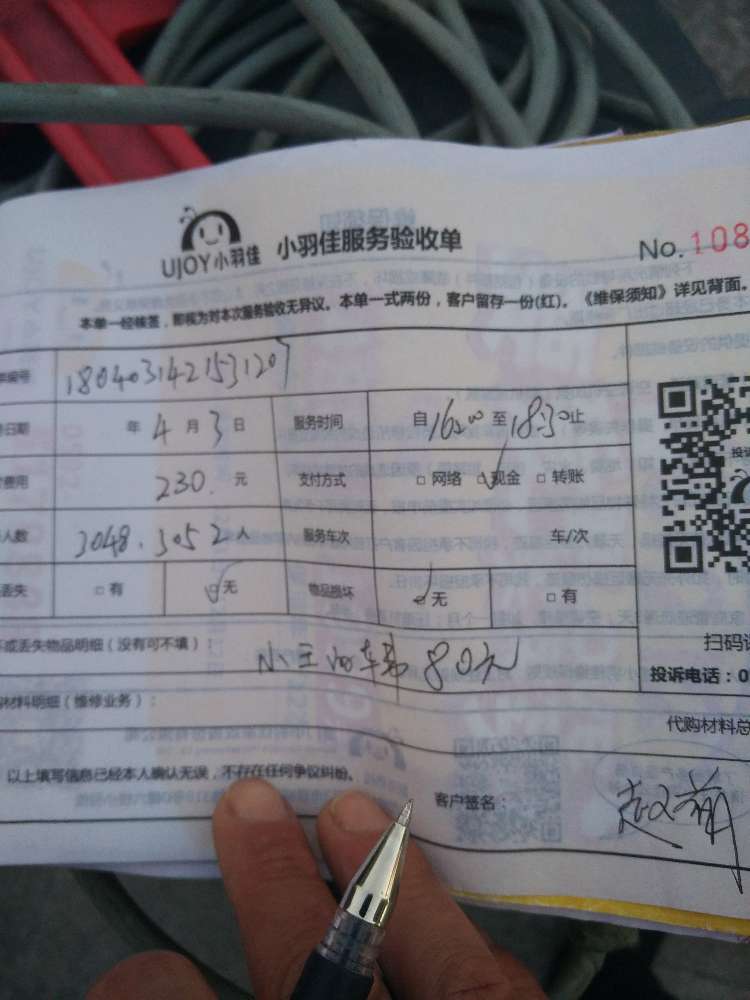 UJOY小羽佳 小羽佳服务验收单 No.108
本单一经核签，即视为对本次服务验收无异议。本单一式两份，客户留存一份(红)。《维保须知》详见背面。
编号 180403142153120
日期 年4月3日 服务时间 自16:00至18:30止
费用 230.元 支付方式 □网络 □现金 □转账
人数 3048.3052人 服务车次 车/次
丢失 □有 □无 物品损坏 □无 □有
或丢失物品明细（没有可不填）： 80元
扫码
投诉电话：0
材料明细（维修业务）：
代购材料总
以上填写信息已经本人确认无误，不存在任何争议纠纷。
客户签名：